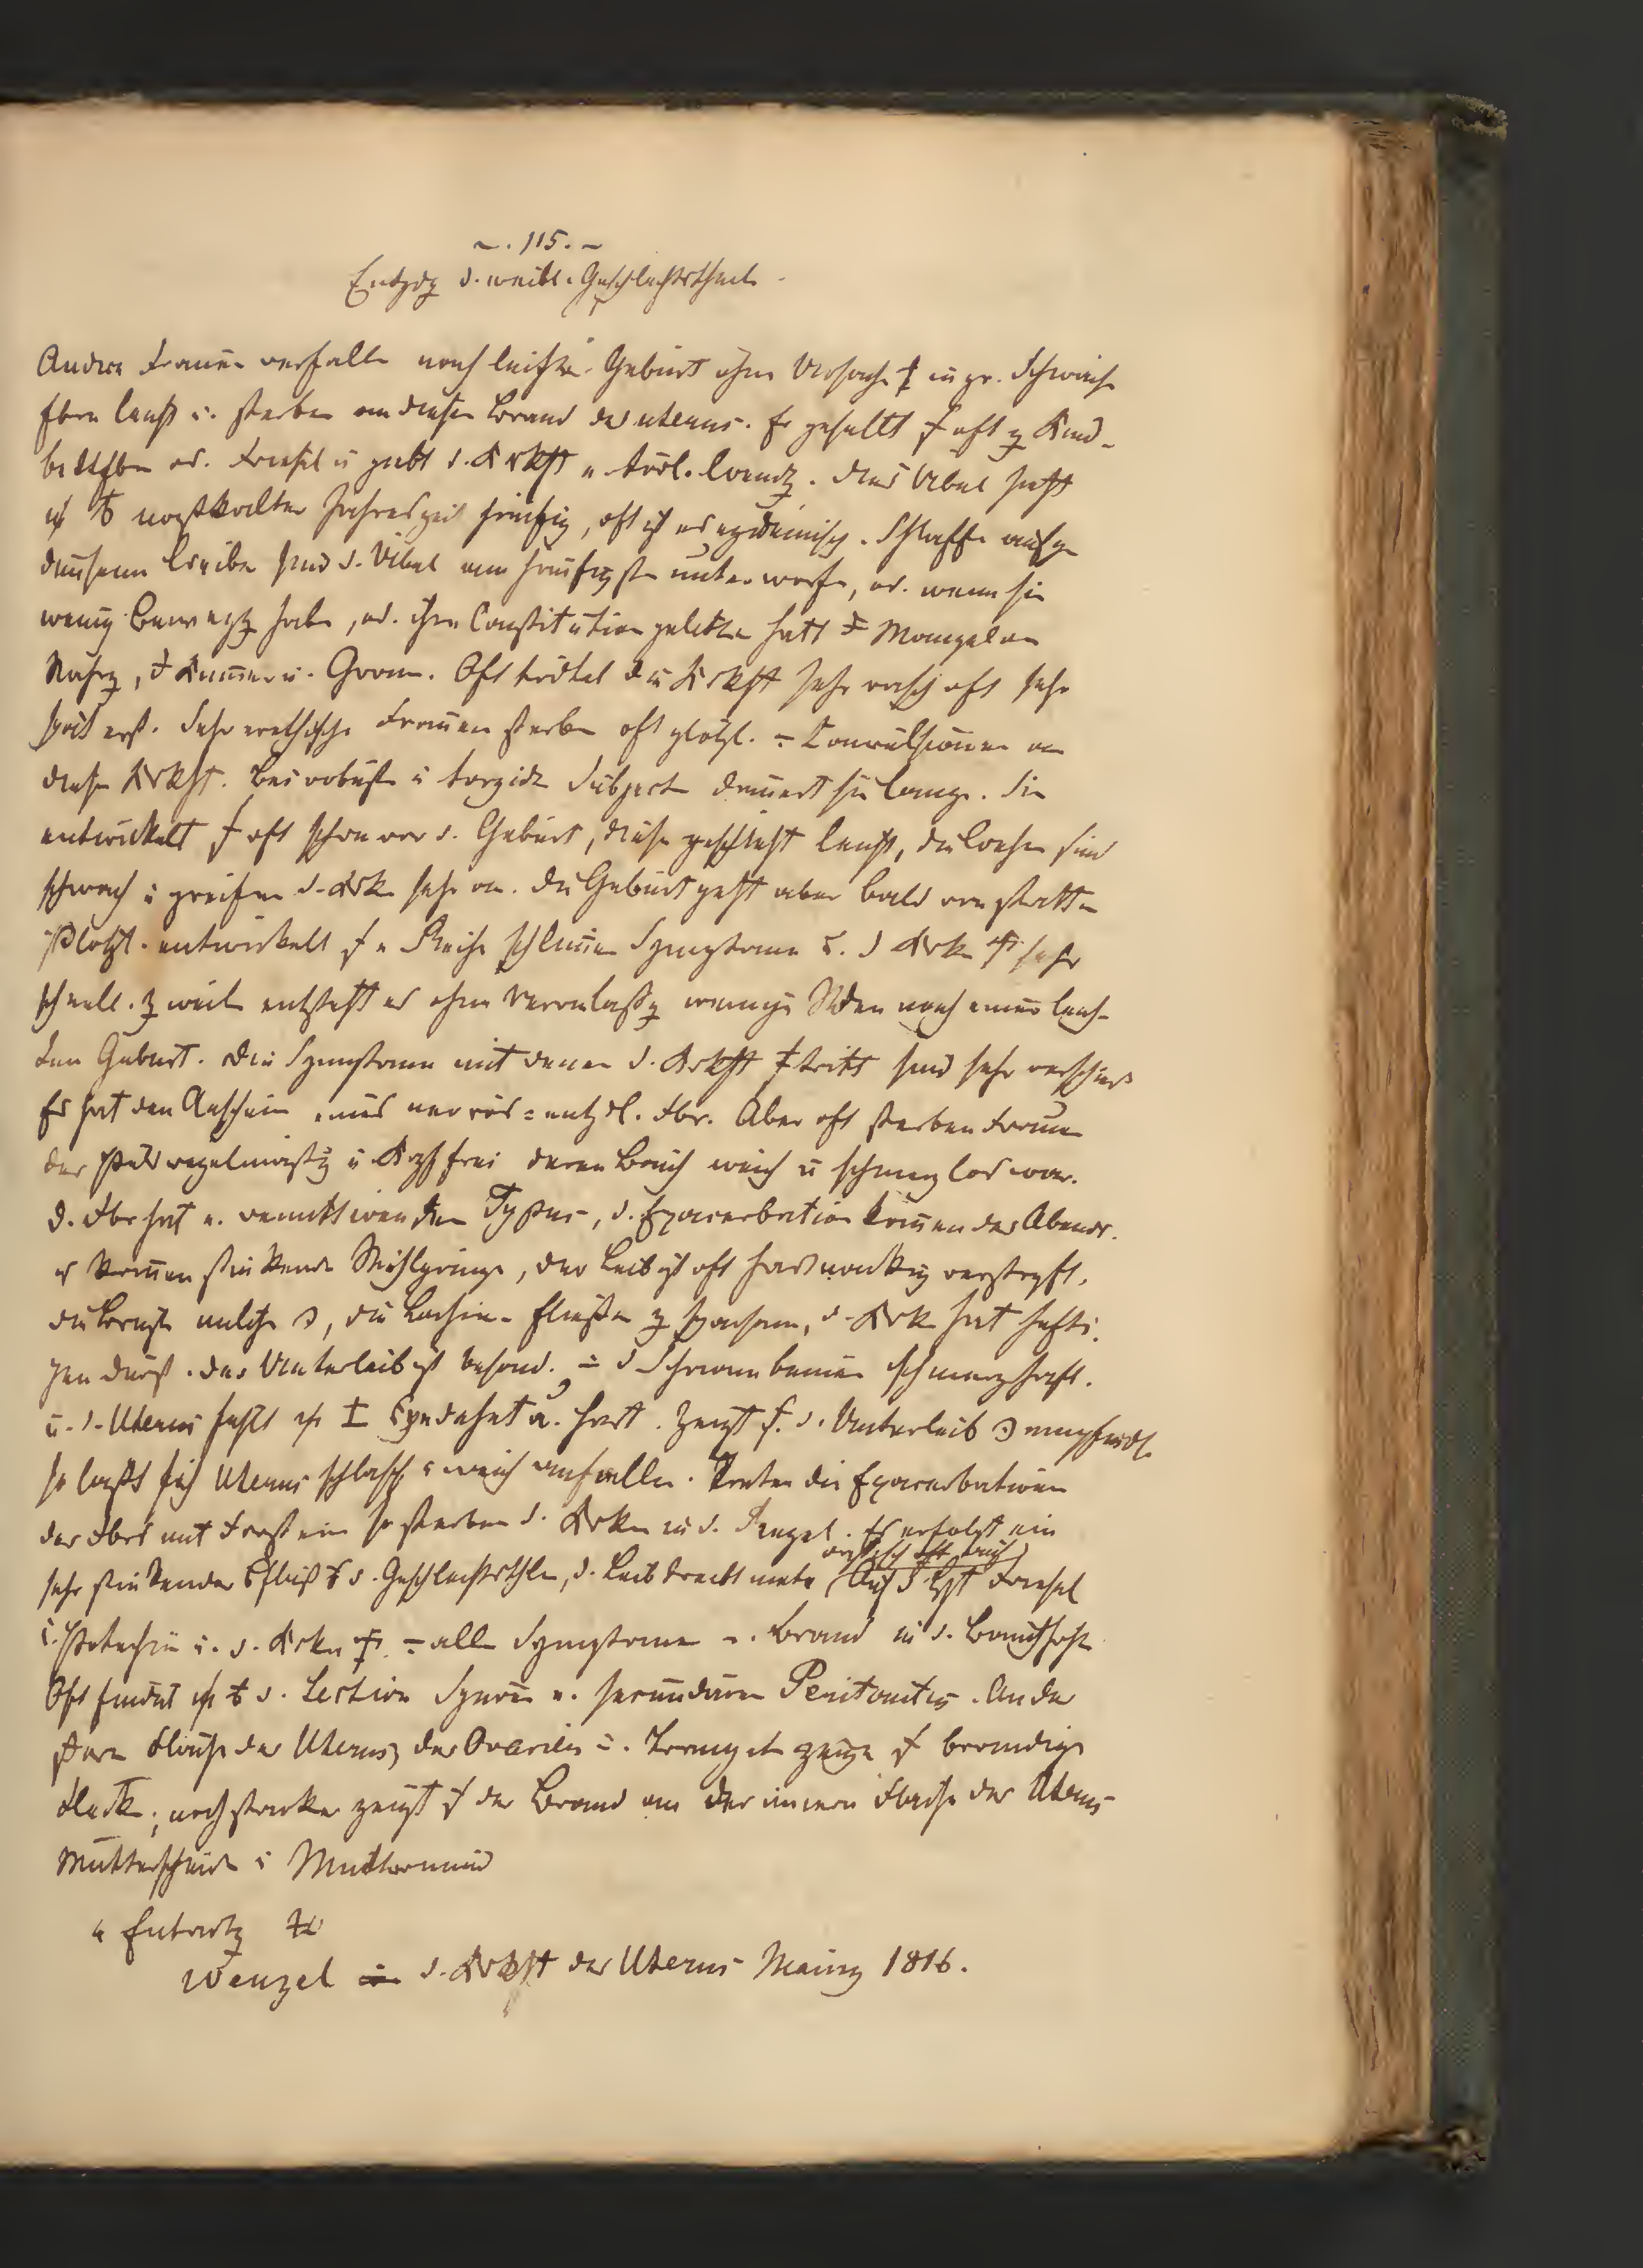 ~. 115. ~
Entzdg d. weibl. Geschlechtstheile
Andere Frauen verfallen nach leichter Geburt ohne Ursache in gr. Schwäche
fbern leicht u. sterben an diesem Brand des uterus. Er gesellt oft z Kind-
bettfbr od. Friesel u giebt d. Krkht e. tödl. Wendg. Das Uibel ist
naßkalter Jahreszeit häufig, oft ist es epidemisch. Schlaffe aufge
dunsene Leiber sind d. Uibel am häufigsten unterworfen, od. wenn sie
wenig Bewegg haben, od. ihre Constitution gelitten hatt Mangel an
Nahrg, Kummer u. Gram. Oft tödtet die Krkht sehr rasch oft sehr
spät erst. Sehr erethische Frauen sterben oft plötzl. Convulsionen an
dieser Krkht. Bei robusten u torpiden Subjecten dauert sie lange. Sie
entwickelt oft schon vor d. Geburt, diese geschieht leicht, die Wehen sind
schwach u greifen d. Krke sehr an. Die Geburt geht aber bald von statten
Plötzl. entwickelt e Reihe schlimer Symptome u. d Krke sehr
schnell. zweil entsteht es ohne Veranlassg wenige Stden nach einer leich-
ten Geburt. Die Symptome mit denen d. Krkht tritt sind sehr verschied
Es hat den Anschein eines nervös = entzdl. Fbr. Aber oft sterben Frauen
der Puls regelmäßig u Kopf frei deren Bauch weich u schmerzlos war.
d. Fbr hat e. remittirenden Typus, d. Exacerbation komen des Abends.
es komen stinkende Stuhlgänge, der Leib ist oft hartnäckig verstopft,
die Brüste welche, die Lochien fließen z sparsam, d. Krke hat hefti.
gen Durst. der Unterleib ist besond. d Schaambeine schmerzhaft.
u. d. Uterus fühlt ausgedehnt u. hart. Zeigt s. d. Unterleib empfindl.
so läßt sich Uterus schlaff u weich anfühlen. Treten die Exacerbationen
des Fbrs mit Frost ein so sterben d. Krken in d. Regel. Es erfolgt ein
sehr stinkender fluß d. Geschlechtsthle, d. Leib treibt Auf d Friesel
u. Petechien u. d. Krke allen Symptomen v. Brand in d. Bauchhöhle
Oft findet d. Section Spuren e. secundären Peritonitis. An der
äußern Fläche des Uterus, der Ovarien u. zeigen brandige
Flecke; noch stärker zeigt der Brand an der innern Fläche des Uterus
Mutterscheide u Muttermund
Wenzel d. Krkht des Uterus Mainz 1816.